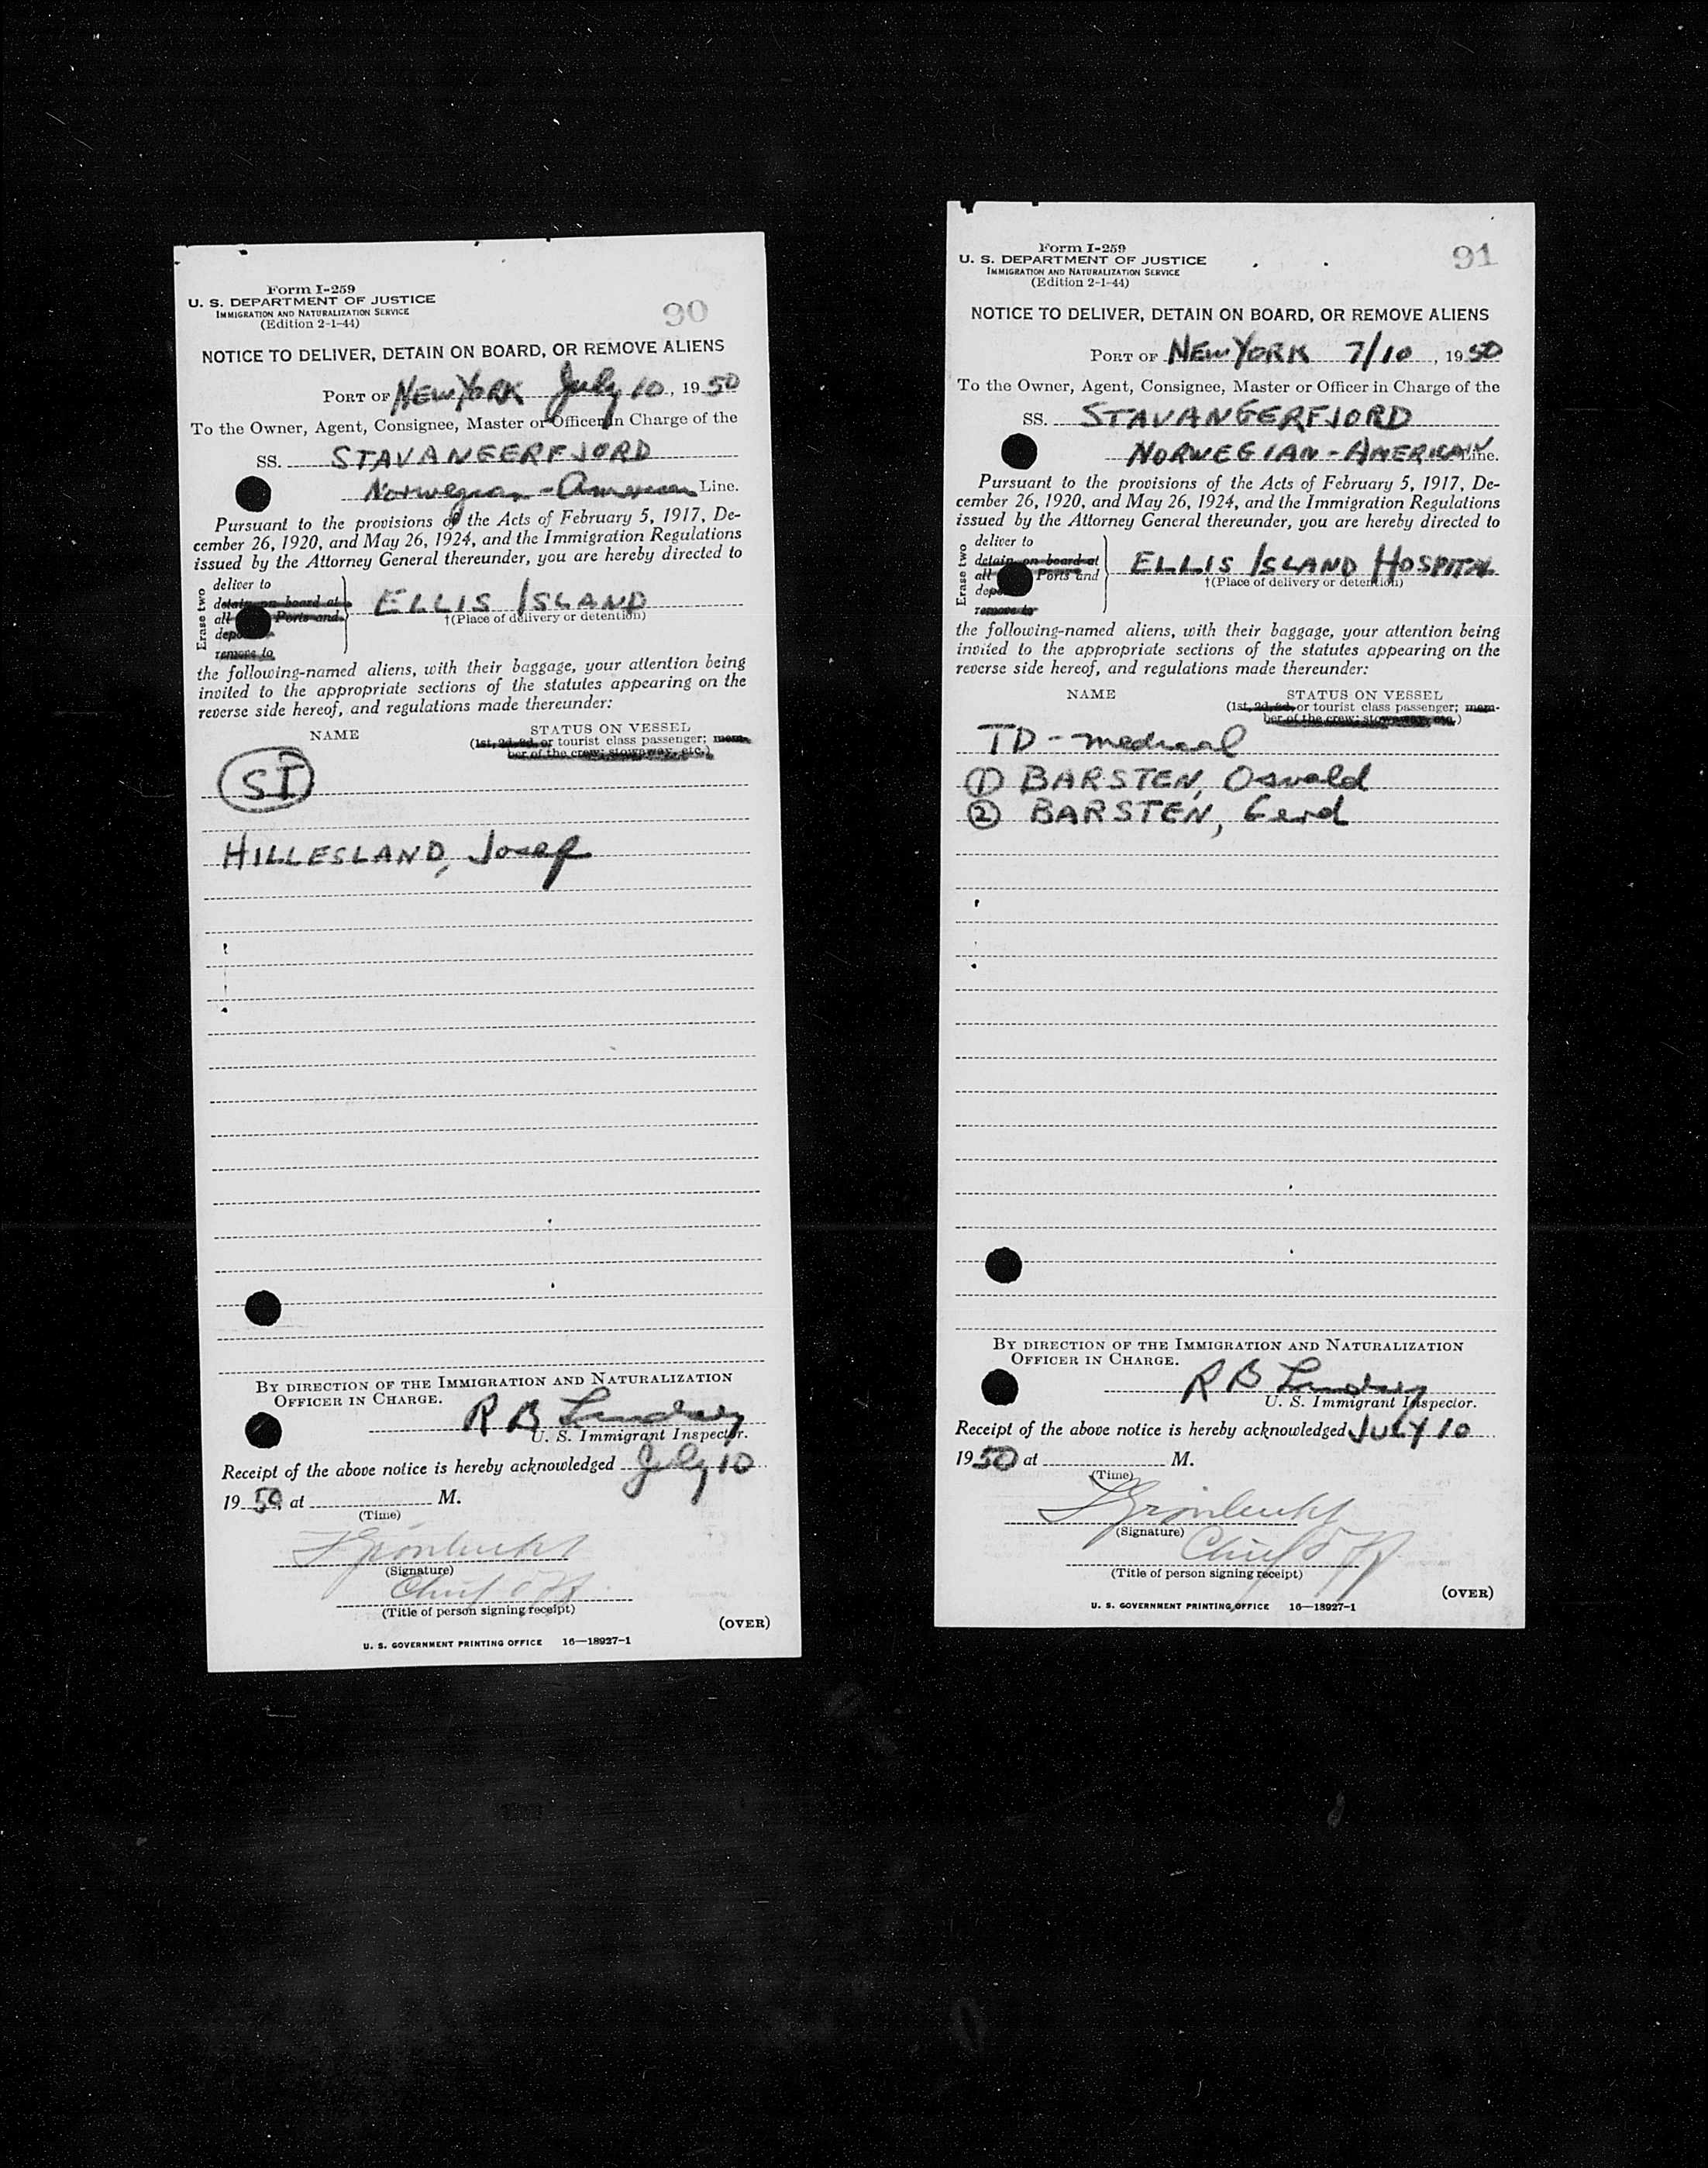 Form I-259
U. S. DEPARTMENT OF JUSTICE
IMMIGRATION AND NATURALIZATION SERVICE
(Edition 2-1-44)
90
NOTICE TO DELIVER, DETAIN ON BOARD, OR REMOVE ALIENS
PORT OF NEW YORK July 10, 1950
To the Owner, Agent, Consignee, Master or Officer in Charge of the
SS. STAVANEERFJORD
Norwegian-American Line.
Pursuant to the provisions of the Acts of February 5, 1917, De-
cember 26, 1920, and May 26, 1924, and the Immigration Regulations
issued by the Attorney General thereunder, you are hereby directed to
Erase two
deliver to
detain on board at
all Ports and
remove to
ELLIS ISLAND
†(Place of delivery or detention)
the following-named aliens, with their baggage, your attention being
invited to the appropriate sections of the statutes appearing on the
reverse side hereof, and regulations made thereunder:
NAME
STATUS ON VESSEL
(1st, 2d, 3d, or tourist class passenger; mem-
ber of the crew; stowaway, etc.)
SI
HILLESLAND, Josef
BY DIRECTION OF THE IMMIGRATION AND NATURALIZATION
OFFICER IN CHARGE.
R B Lindsey
U. S. Immigrant Inspector.
Receipt of the above notice is hereby acknowledged July 10
1950 at M.
(Time)
(Signature)
Chief Off
(Title of person signing receipt)
(OVER)
U. S. GOVERNMENT PRINTING OFFICE 16—18927-1
Form I-259
U. S. DEPARTMENT OF JUSTICE
IMMIGRATION AND NATURALIZATION SERVICE
(Edition 2-1-44)
91
NOTICE TO DELIVER, DETAIN ON BOARD, OR REMOVE ALIENS
PORT OF NEW YORK 7/10, 1950
To the Owner, Agent, Consignee, Master or Officer in Charge of the
SS. STAVANGERFJORD
NORWEGIAN-AMERICAN Line.
Pursuant to the provisions of the Acts of February 5, 1917, De-
cember 26, 1920, and May 26, 1924, and the Immigration Regulations
issued by the Attorney General thereunder, you are hereby directed to
Erase two
deliver to
detain on board at
all Ports and
remove to
ELLIS ISLAND HOSPITAL
†(Place of delivery or detention)
the following-named aliens, with their baggage, your attention being
invited to the appropriate sections of the statutes appearing on the
reverse side hereof, and regulations made thereunder:
NAME
STATUS ON VESSEL
(1st, 2d, 3d, or tourist class passenger; mem-
ber of the crew; stowaway, etc.)
TD - medical
① BARSTEN, Osvald
② BARSTEN, Gerd
BY DIRECTION OF THE IMMIGRATION AND NATURALIZATION
OFFICER IN CHARGE.
R B Lindsey
U. S. Immigrant Inspector.
Receipt of the above notice is hereby acknowledged JULY 10
1950 at M.
(Time)
(Signature)
Chief Off
(Title of person signing receipt)
(OVER)
U. S. GOVERNMENT PRINTING OFFICE 16—18927-1